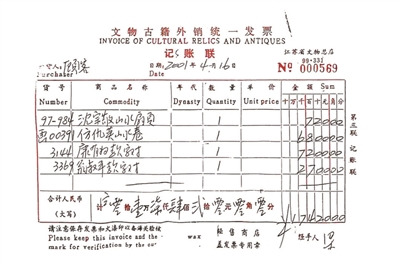 文物古籍外销统一发票
INVOICE OF CULTURAL RELICS AND ANTIQUES
记账联
江苏省文物总店
人: 顾客
Purchaser
日期: 2001年4月16日
DATE:
99-331
№ 000569
货号 商品名称 年代 数量 单价 金额 Sum
Number Commodity Dynasty Quantity Unit price 十万千百十元角分
97-984 山水扇页 1 72000
00391 仿 山水卷 1 68000
3144 康有为款字对 1 72000
3369 翁款字对 1 27000
第三联 记账联
合计人民币
(大写)
零拾 壹万 柒仟 肆佰 贰拾 零元 零角 零分
1742000
请注意保存发票和火漆印以备海关检验
Please keep this invoice and the wax
mark for verification by the
销售商店
盖发票专用章
经手人